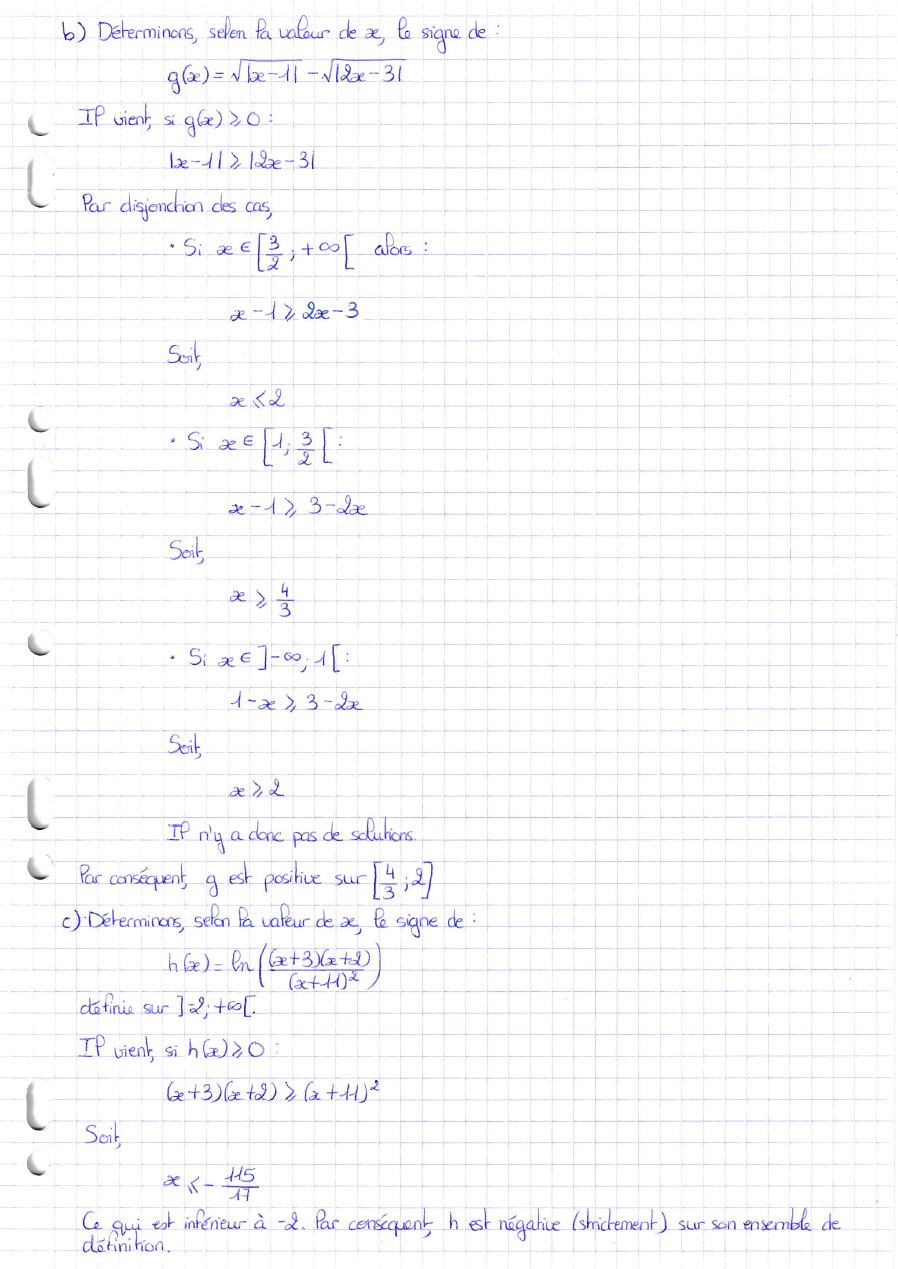 b) Déterminons, selon la valeur de x, le signe de :
g(x) = √|x-1| - √|2x-3|
Il vient, si g(x) ⩾ 0 :
|x-1| ⩾ |2x-3|
Par disjonction des cas,
· Si x ∈ [3/2 ; +∞[ alors :
x - 1 ⩾ 2x - 3
Soit,
x ⩽ 2
· Si x ∈ [1; 3/2 [ :
x - 1 ⩾ 3 - 2x
Soit,
x ⩾ 4/3
· Si x ∈ ]-∞; 1[ :
1 - x ⩾ 3 - 2x
Soit,
x ⩾ 2
Il n'y a donc pas de solutions.
Par conséquent, g est positive sur [4/3 ; 2]
c) Déterminons, selon la valeur de x, le signe de :
h(x) = ln((x+3)(x+2)/(x+11)²)
définie sur ]-2; +∞[.
Il vient, si h(x) ⩾ 0 :
(x+3)(x+2) ⩾ (x+11)²
Soit,
x ⩽ - 115/17
Ce qui est inférieur à -2. Par conséquent, h est négative (strictement) sur son ensemble de
définition.